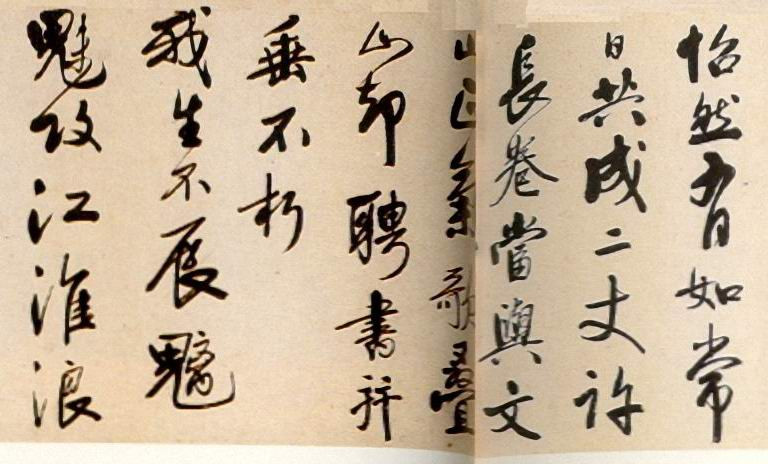 怡然 如常
日共成二丈許
長卷當與文
山正氣歌疊
山却聘書并
垂不朽
我生不辰魑
魅攻江淮浪